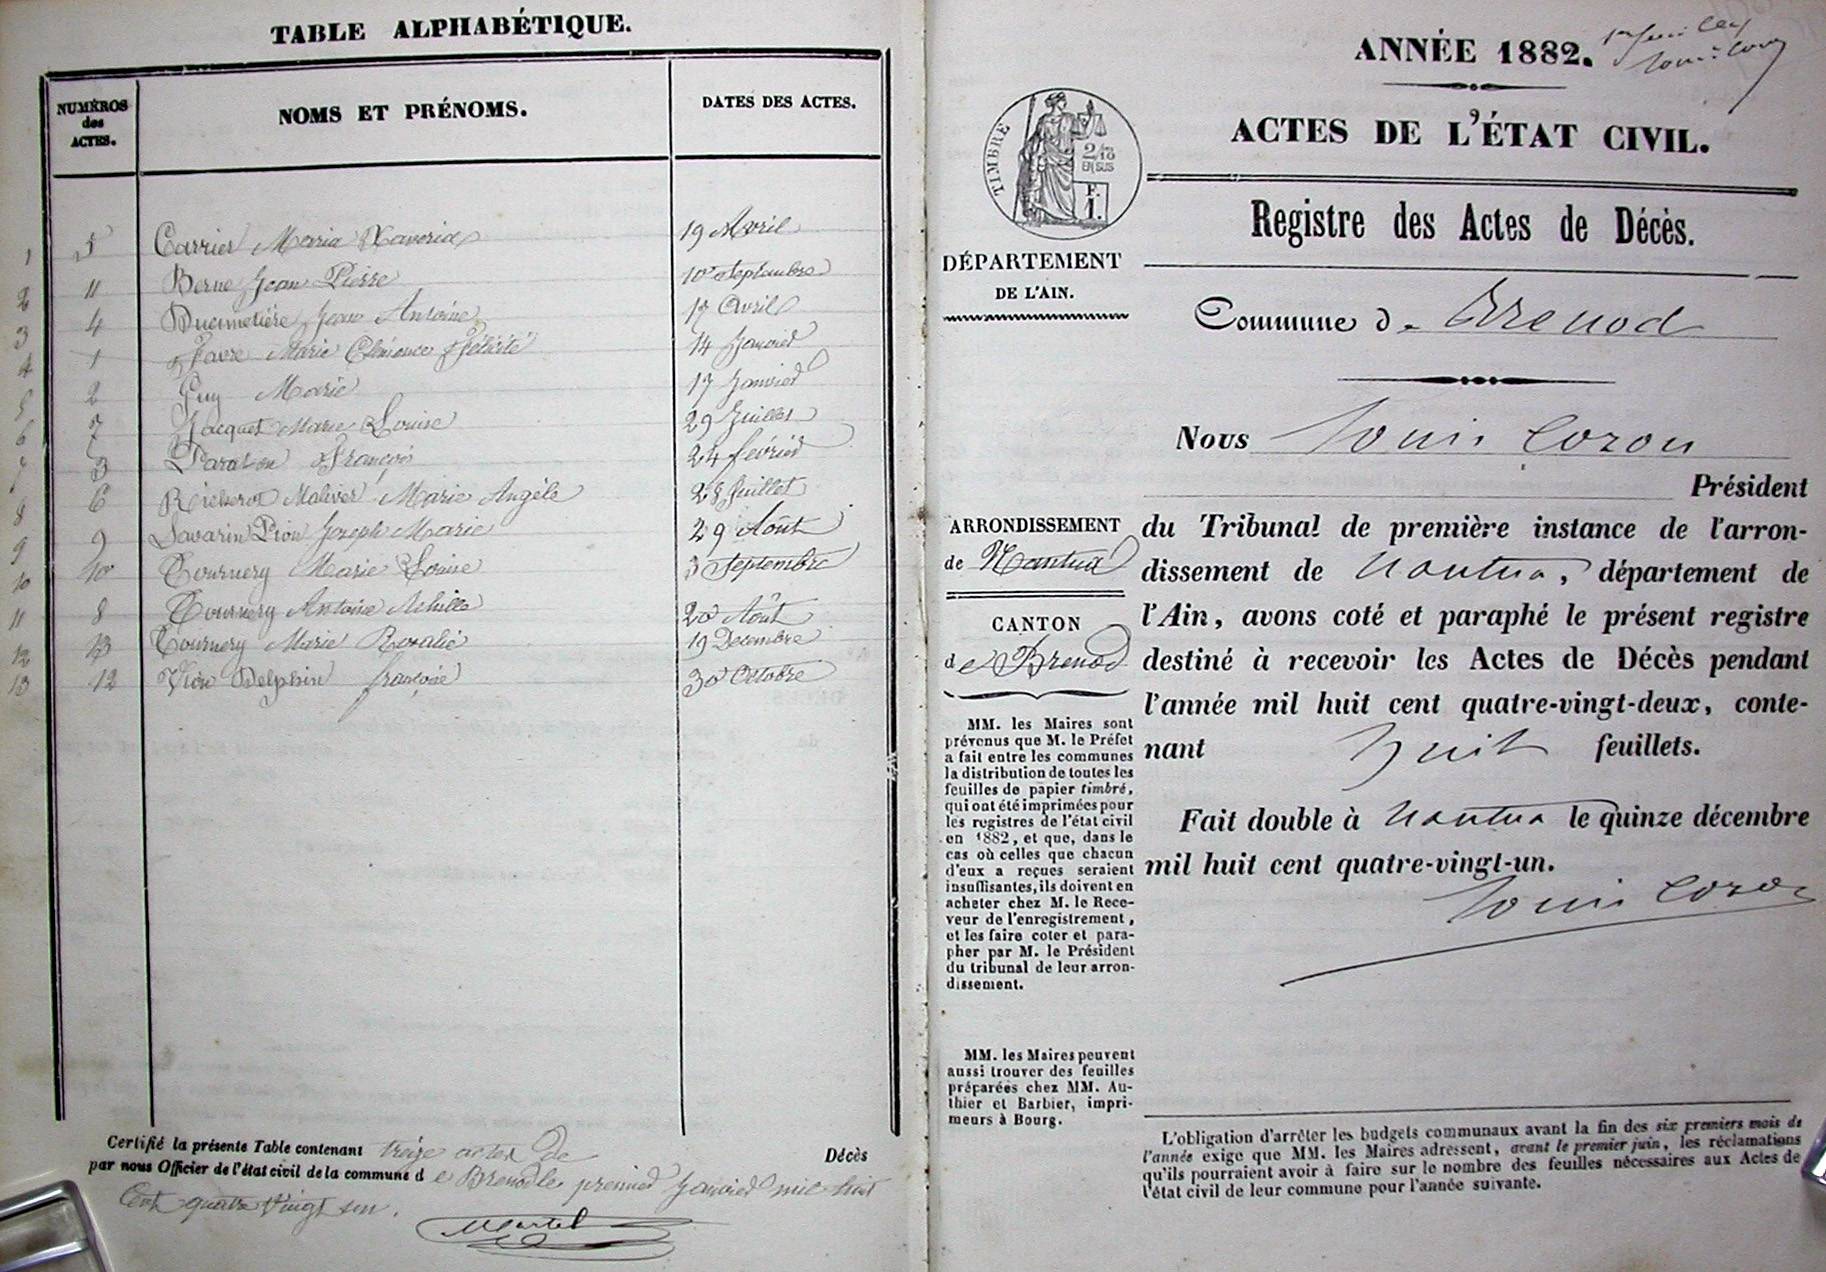 TABLE ALPHABÉTIQUE.
NUMÉROS des ACTES.
NOMS ET PRÉNOMS.
DATES DES ACTES.
1 5 Carrier Maria Xaveria 19 Avril
2 11 Berne Jean Pierre 10 Septembre
3 4 Ducimetière Jean Antoine 17 Avril
4 1 Favre Marie Clémence Félicité 14 Janvier
5 2 Guy Marie 17 Janvier
6 7 Jacquet Marie Louise 29 Juillet
7 3 François 24 février
8 6 Marie Angèle 28 Juillet
9 9 Savarin Pion Joseph Marie 29 Août
10 10 Tournery Marie Louise 3 Septembre
11 8 Tournery Antoine Achille 20 Août
12 13 Tournery Marie Rosalie 19 Decembre
13 12 Vion Delphin françois 30 Octobre
Certifié la présente Table contenant treize actes de Décès
par nous Officier de l'état civil de la commune d e Brenod le premier Janvier mil huit
Cent quatre vingt un.
Martel
ANNÉE 1882.
ACTES DE L'ÉTAT CIVIL.
TIMBRE
2/10
EN SUS
F.
1.
Registre des Actes de Décès.
DÉPARTEMENT
DE L'AIN.
Commune de Brenod
Nous Louis Cozon
Président
du Tribunal de première instance de l'arron-
dissement de Nantua, département de
l'Ain, avons coté et paraphé le présent registre
destiné à recevoir les Actes de Décès pendant
l'année mil huit cent quatre-vingt-deux, conte-
nant huit feuillets.
Fait double à Nantua le quinze décembre
mil huit cent quatre-vingt-un.
Louis Cozon
ARRONDISSEMENT
de Nantua
CANTON
de Brenod
MM. les Maires sont
prévenus que M. le Préfet
a fait entre les communes
la distribution de toutes les
feuilles de papier timbré,
qui ont été imprimées pour
les registres de l'état civil
en 1882, et que, dans le
cas où celles que chacun
d'eux a reçues seraient
insuffisantes, ils doivent en
acheter chez M. le Rece-
veur de l'enregistrement,
et les faire coter et para-
pher par M. le Président
du tribunal de leur arron-
dissement.
MM. les Maires peuvent
aussi trouver des feuilles
préparées chez MM. Au-
thier et Barbier, impri-
meurs à Bourg.
L'obligation d'arrêter les budgets communaux avant la fin des six premiers mois de
l'année exige que MM. les Maires adressent, avant le premier juin, les réclamations
qu'ils pourraient avoir à faire sur le nombre des feuilles nécessaires aux Actes de
l'état civil de leur commune pour l'année suivante.